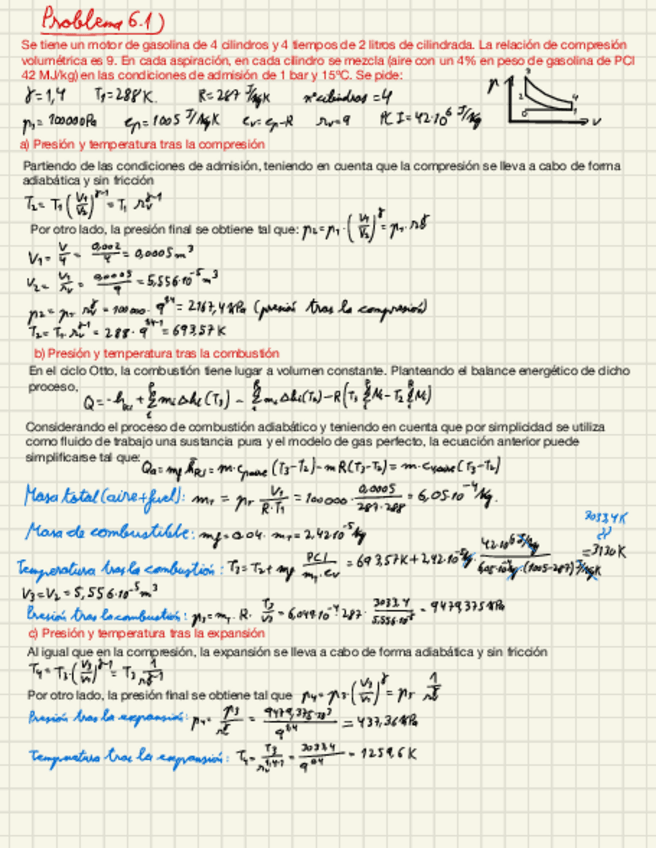 Problema 6.1)
Se tiene un motor de gasolina de 4 cilindros y 4 tiempos de 2 litros de cilindrada. La relación de compresión
volumétrica es 9. En cada aspiración, en cada cilindro se mezcla (aire con un 4% en peso de gasolina de PCI
42 MJ/kg) en las condiciones de admisión de 1 bar y 15ºC. Se pide:
γ = 1,4 T₁ = 288 K. R = 287 J/kgK nº cilindros = 4
p₁ = 100000 Pa cp = 1005 J/kgK cv = cp-R rv = 9 PCI = 42·10⁶ J/kg
p v
a) Presión y temperatura tras la compresión
Partiendo de las condiciones de admisión, teniendo en cuenta que la compresión se lleva a cabo de forma
adiabática y sin fricción
T₂ = T₁ (V₁/V₂)^γ-1 = T₁ rv^γ-1
Por otro lado, la presión final se obtiene tal que: p₂ = p₁ · (V₁/V₂)^γ = p₁ · rv^γ
V₁ = V/4 = 0,002/4 = 0,0005 m³
V₂ = V₁/rv = 0,0005/9 = 5,556·10⁻⁵ m³
p₂ = p₁ rv^γ = 100000 · 9^1,4 = 2167,4 kPa (presión tras la compresión)
T₂ = T₁ · rv^γ-1 = 288 · 9^1,4-1 = 693,57 K
b) Presión y temperatura tras la combustión
En el ciclo Otto, la combustión tiene lugar a volumen constante. Planteando el balance energético de dicho
proceso,
Considerando el proceso de combustión adiabático y teniendo en cuenta que por simplicidad se utiliza
como fluido de trabajo una sustancia pura y el modelo de gas perfecto, la ecuación anterior puede
simplificarse tal que:
Masa total (aire+fuel): m₁ = p₁ V₁/R·T₁ = 100000 · 0,0005/287·288 = 6,05·10⁻⁴ kg.
Masa de combustible: mf = 0,04 · m₁ = 2,42·10⁻⁵ kg
3033,4 K
Temperatura tras la combustión: T₃ = T₂ + mf PCI/m₁·cv = 693,57K + 2,42·10⁻⁵ kg · 42·10⁶ J/kg / 6,05·10⁻⁴ kg · (1005-287) J/kgK = 3130 K
V₃ = V₂ = 5,556·10⁻⁵ m³
Presión tras la combustión: p₃ = m₁ · R · T₃/V₃ = 6,049·10⁻⁴ · 287 · 3033,4/5,556·10⁻⁵ = 9479,375 kPa
c) Presión y temperatura tras la expansión
Al igual que en la compresión, la expansión se lleva a cabo de forma adiabática y sin fricción
T₄ = T₃ · (V₃/V₄)^γ-1 = T₃ 1/rv^γ-1
Por otro lado, la presión final se obtiene tal que p₄ = p₃ · (V₃/V₄)^γ = p₃ · 1/rv^γ
Presión tras la expansión: p₄ = p₃/rv^γ = 9479,375·10³/9^1,4 = 437,36 kPa
Temperatura tras la expansión: T₄ = T₃/rv^1,4-1 = 3033,4/9^0,4 = 1259,6 K